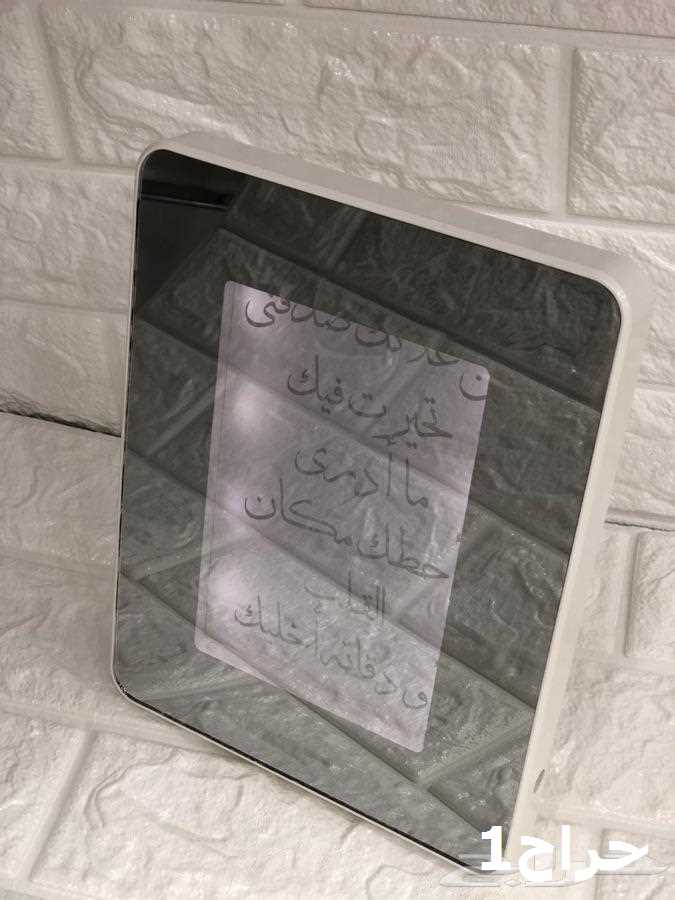 صدفتي
تحيرت فيك
ما أدري
أحطك مكان
القلب
و دقاته أخليك
حراج1